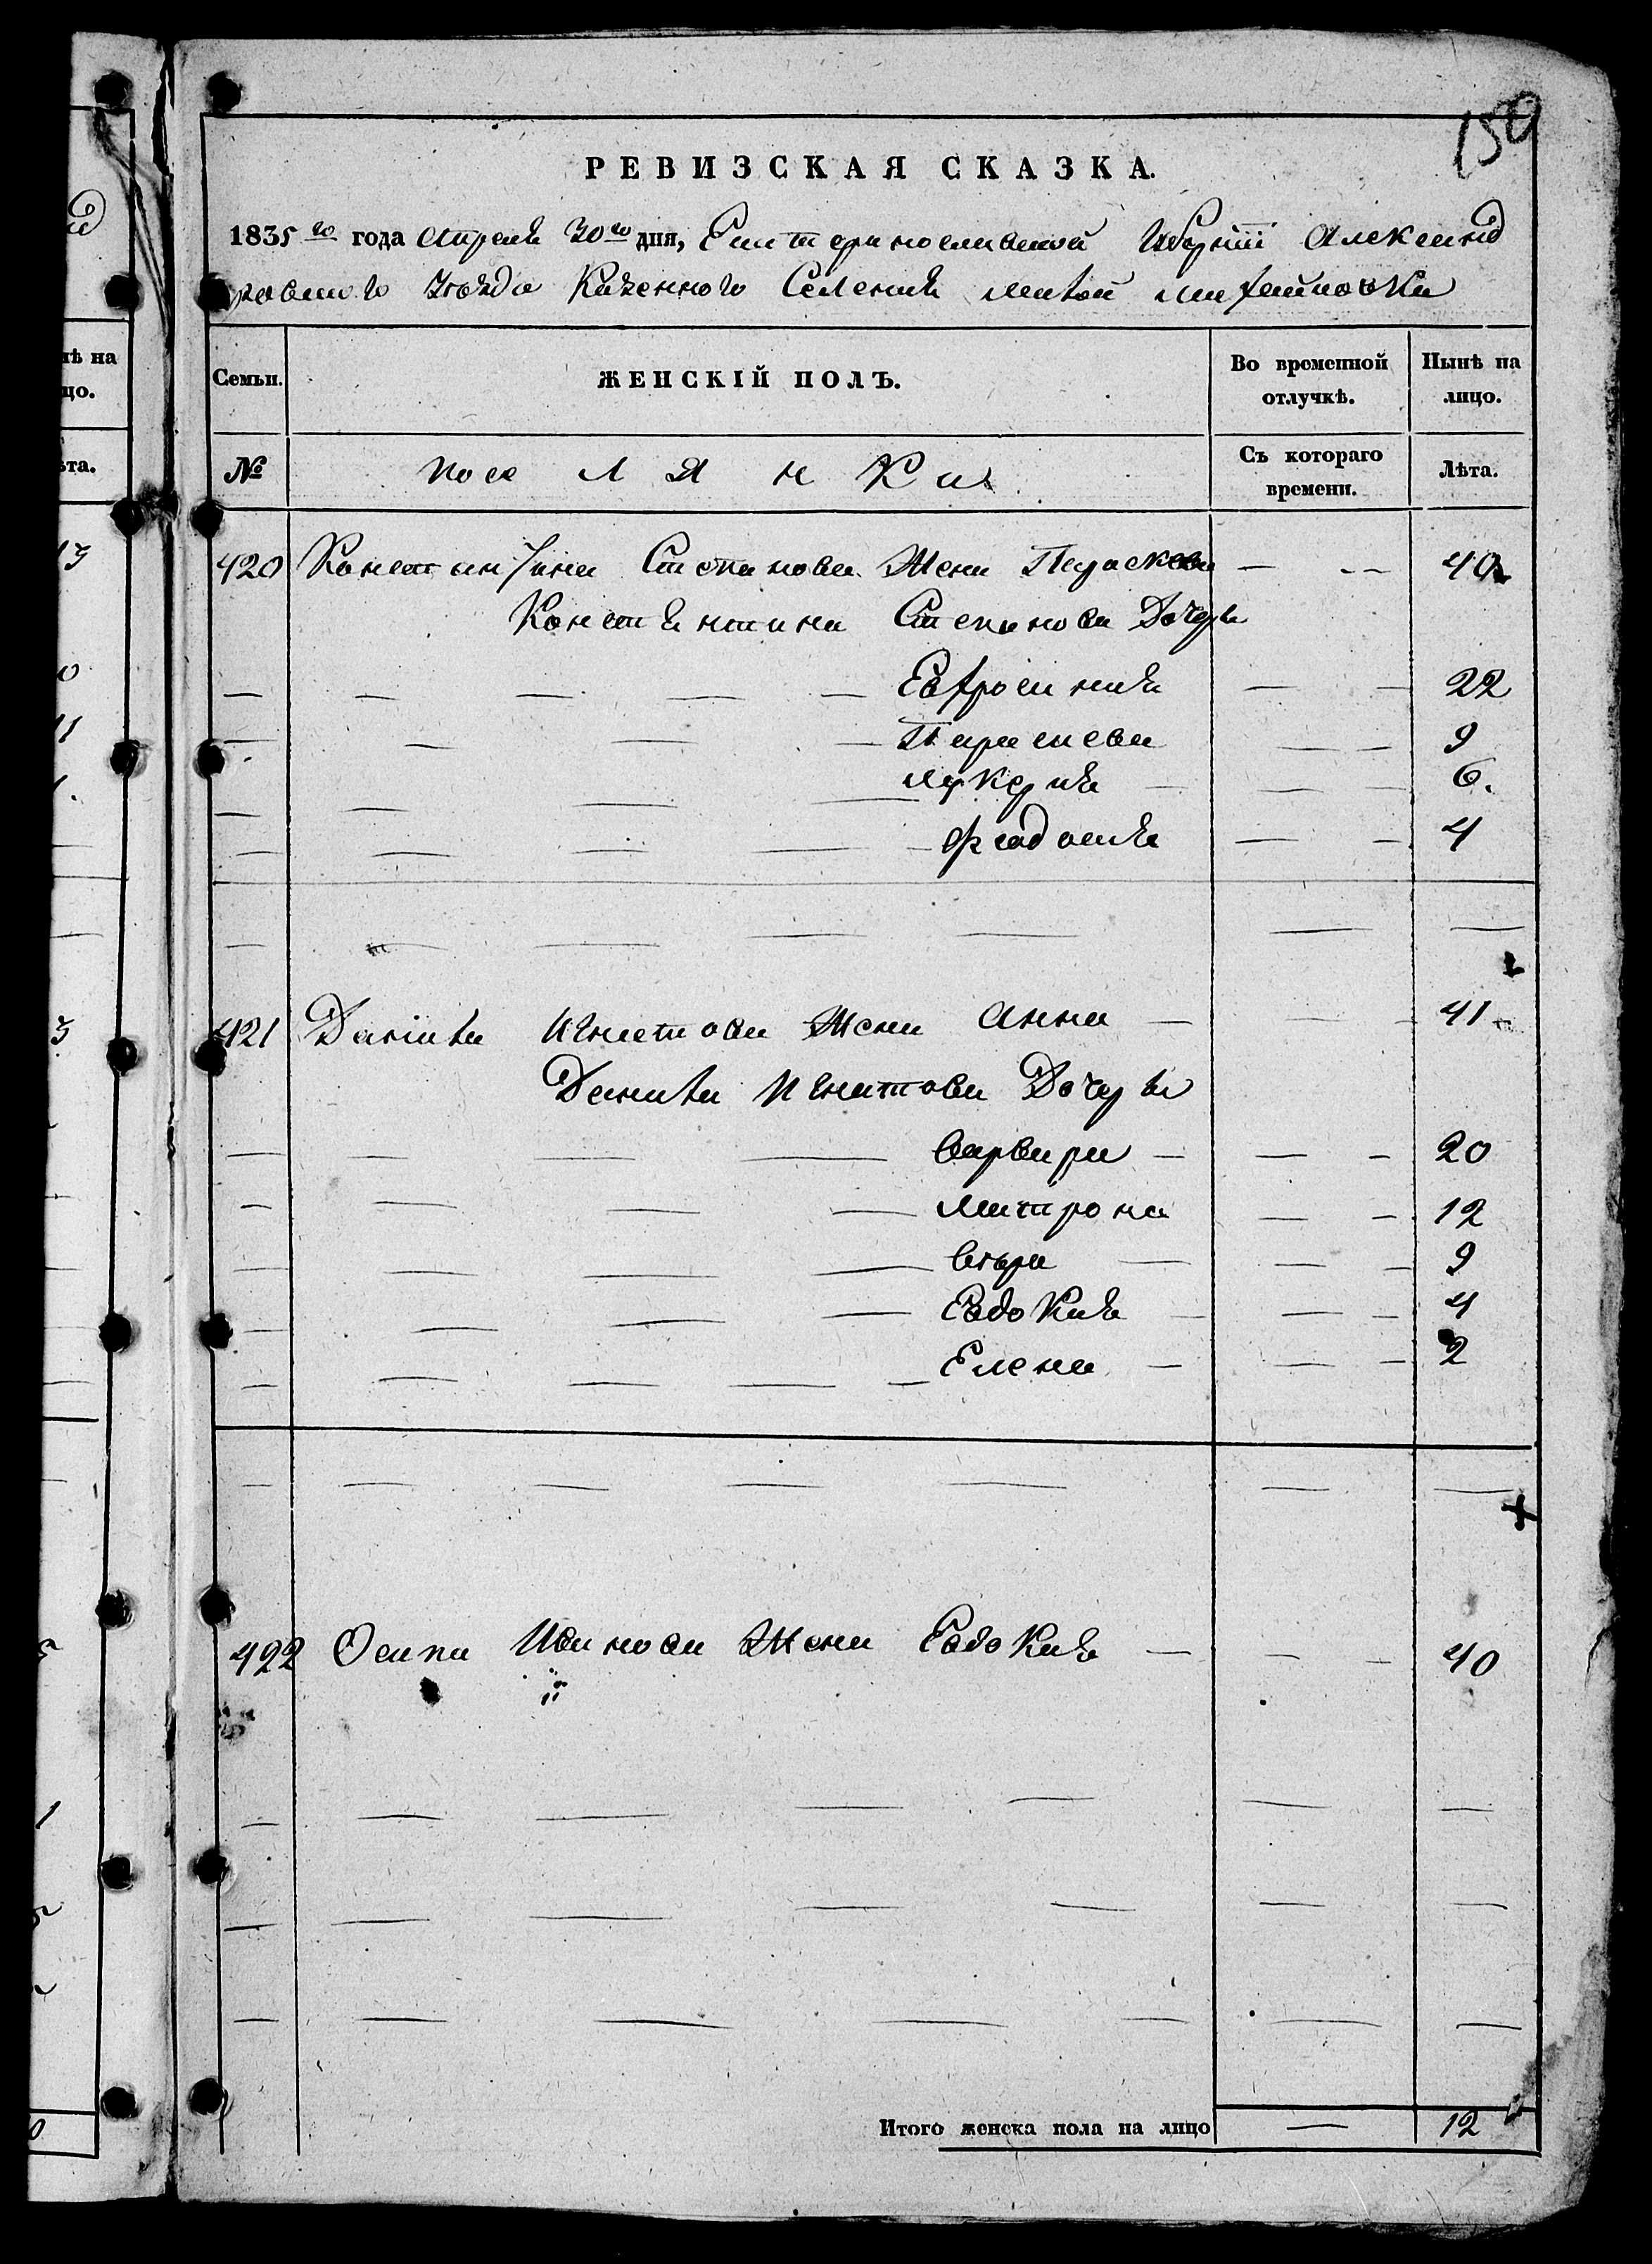 159
РЕВИЗСКАЯ СКАЗКА.
1835 го года Апреля 30 го дня, Екатеринославской Губернiи Александ
ровского Уезда Казенного Селения малой михайловки
Семьи. ЖЕНСКІЙ ПОЛЪ. Во временной отлучкѣ. Нынѣ на лицо.
№ поселянка Съ котораго времени. Лѣта.
420 Константина Степанова Жена Параскева — -- 40
Константина Степанова Дочери
— — — — — Евфросиния — — 22
— — — — Параскева — — 9
— — — — Лукерия — — — 6.
— — — — — Феодосия — — 4
421 Данiила Игнатова Жена Анна — — — 41
Данила Игнатова Дочери
— — — — Варвара — — — 20
— — — — Матрона — — 12
— — — — Вѣра — — — 9
— — — — Евдокия — — — 4
— — — — — Елена — — — 2
422 Осипа Иванова Жена Евдокия — — — 40
Итого женска пола на лицо — 12
нѣ на
цо.
ѣта.
13
0
11
3
1
0